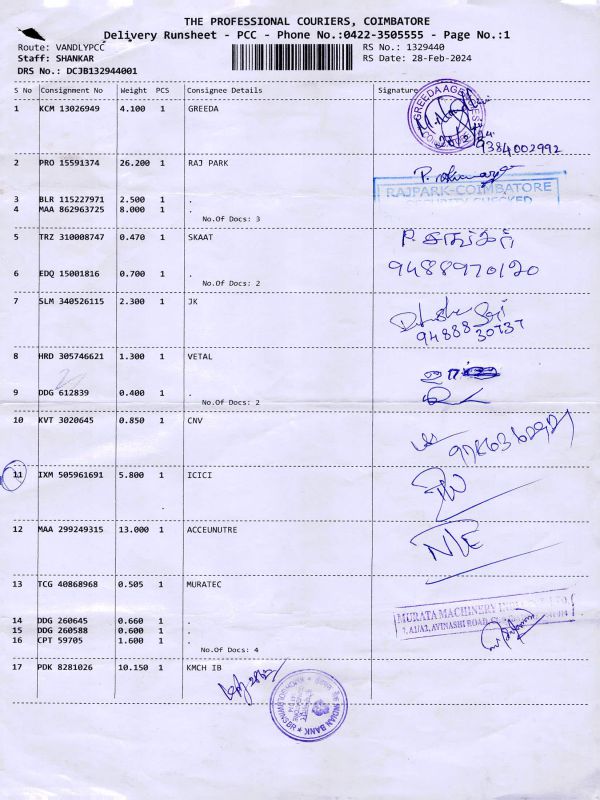 THE PROFESSIONAL COURIERS, COIMBATORE
Delivery Runsheet - PCC - Phone No.:0422-3505555 - Page No.:1
Route: VANDLYPCC RS No.: 1329440
Staff: SHANKAR RS Date: 28-Feb-2024
DRS No.: DCJB132944001
S No Consignment No Weight PCS Consignee Details Signature
1 KCM 13026949 4.100 1 GREEDA
GREEDA AGE
9384002992
2 PRO 15591374 26.200 1 RAJ PARK
RAJPARK-COIMBATORE
SECURITY CHECKED
3 BLR 115227971 2.500 1 .
4 MAA 862963725 8.000 1 .
No.Of Docs: 3
5 TRZ 310008747 0.470 1 SKAAT
9488970120
6 EDQ 15001816 0.700 1 .
No.Of Docs: 2
7 SLM 340526115 2.300 1 JK
8 HRD 305746621 1.300 1 VETAL
9 DDG 612839 0.400 1 .
No.Of Docs: 2
10 KVT 3020645 0.850 1 CNV
11 IXM 505961691 5.800 1 ICICI
12 MAA 299249315 13.000 1 ACCEUNUTRE
N/E
13 TCG 40868968 0.505 1 MURATEC
MURATA MACHINERY
AVINASHI ROAD
14 DDG 260645 0.660 1 .
15 DDG 260588 0.600 1 .
16 CPT 59705 1.600 1 .
No.Of Docs: 4
17 PDK 8281026 10.150 1 KMCH IB
INDIAN BANK